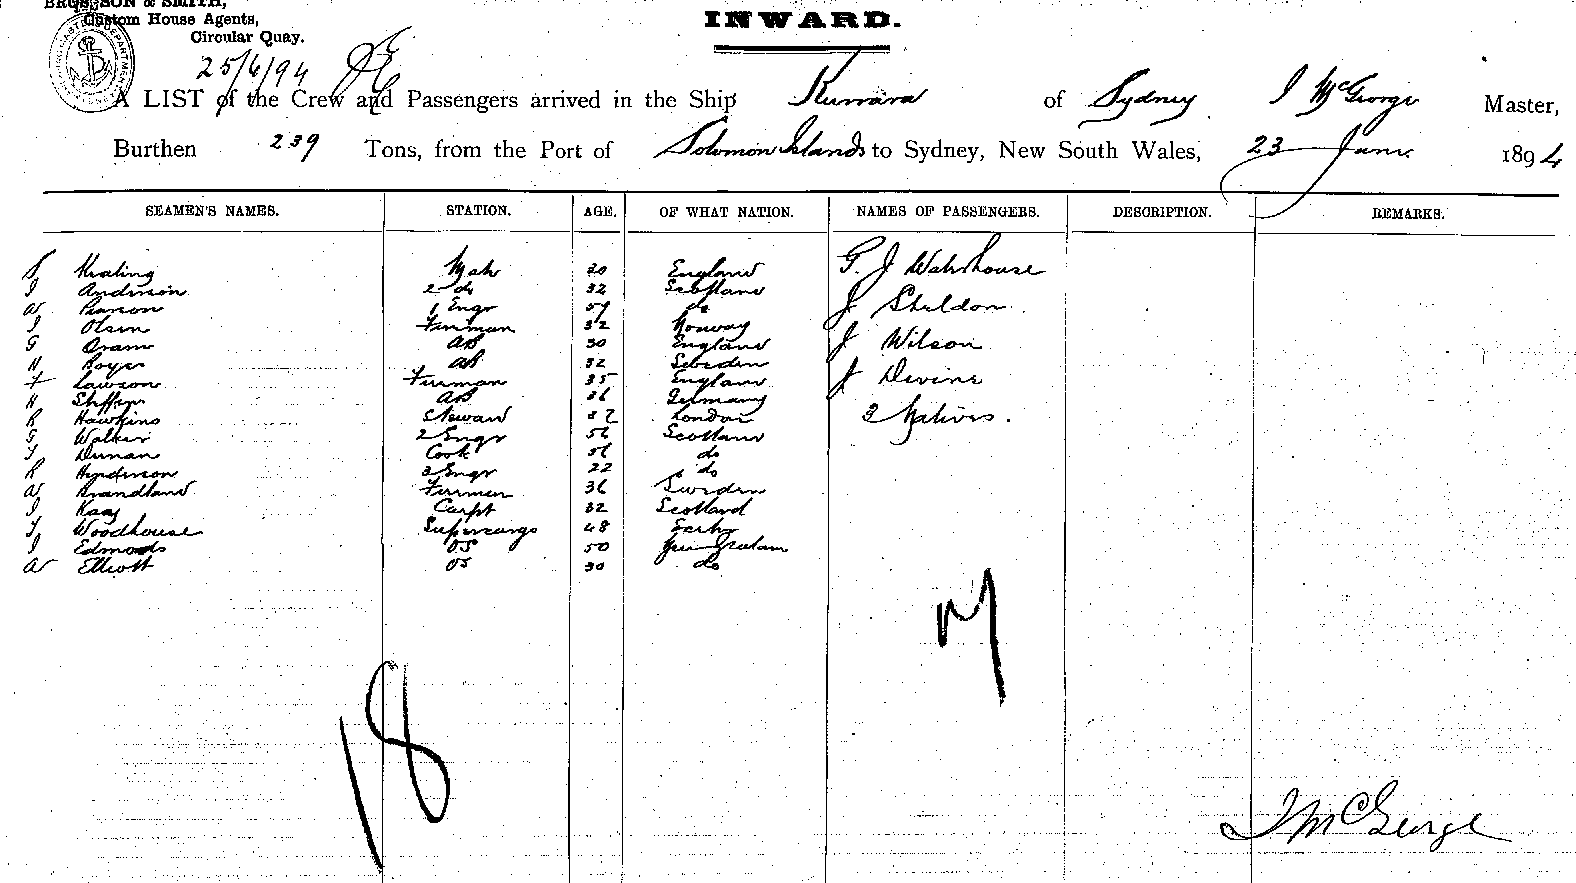 SON & SMITH,
Custom House Agents,
Circular Quay.
INWARD.
25/6/94
A LIST of the Crew and Passengers arrived in the Ship Kurrara of Sydney J McGeorge Master,
Burthen 239 Tons, from the Port of Solomon Islands to Sydney, New South Wales, 23 June 1894
SEAMEN'S NAMES. STATION. AGE. OF WHAT NATION. NAMES OF PASSENGERS. DESCRIPTION. REMARKS.
Mate 30 England G. J Waterhouse
J Anderson 2 do 32 Scotland
W Pearson 1 Engr do J Sheldon
J Olsen Fireman 32 Norway
G Oram AB 30 England J Wilson
H AB 32 Sweden
Lawson Fireman 35 England J Devine
H AB 36 Germany
R Hawkins Steward 32 London 3 Natives.
G Walker 2 Engr 56 Scotland
Cook do
R Henderson 3 Engr 22 do
W Brandland Fireman 36 Sweden
J Carpt 32 Scotland
Woodhouse Supercargo 48
J Edmonds OS 50
W Elliott OS 30 do
18
J McGeorge